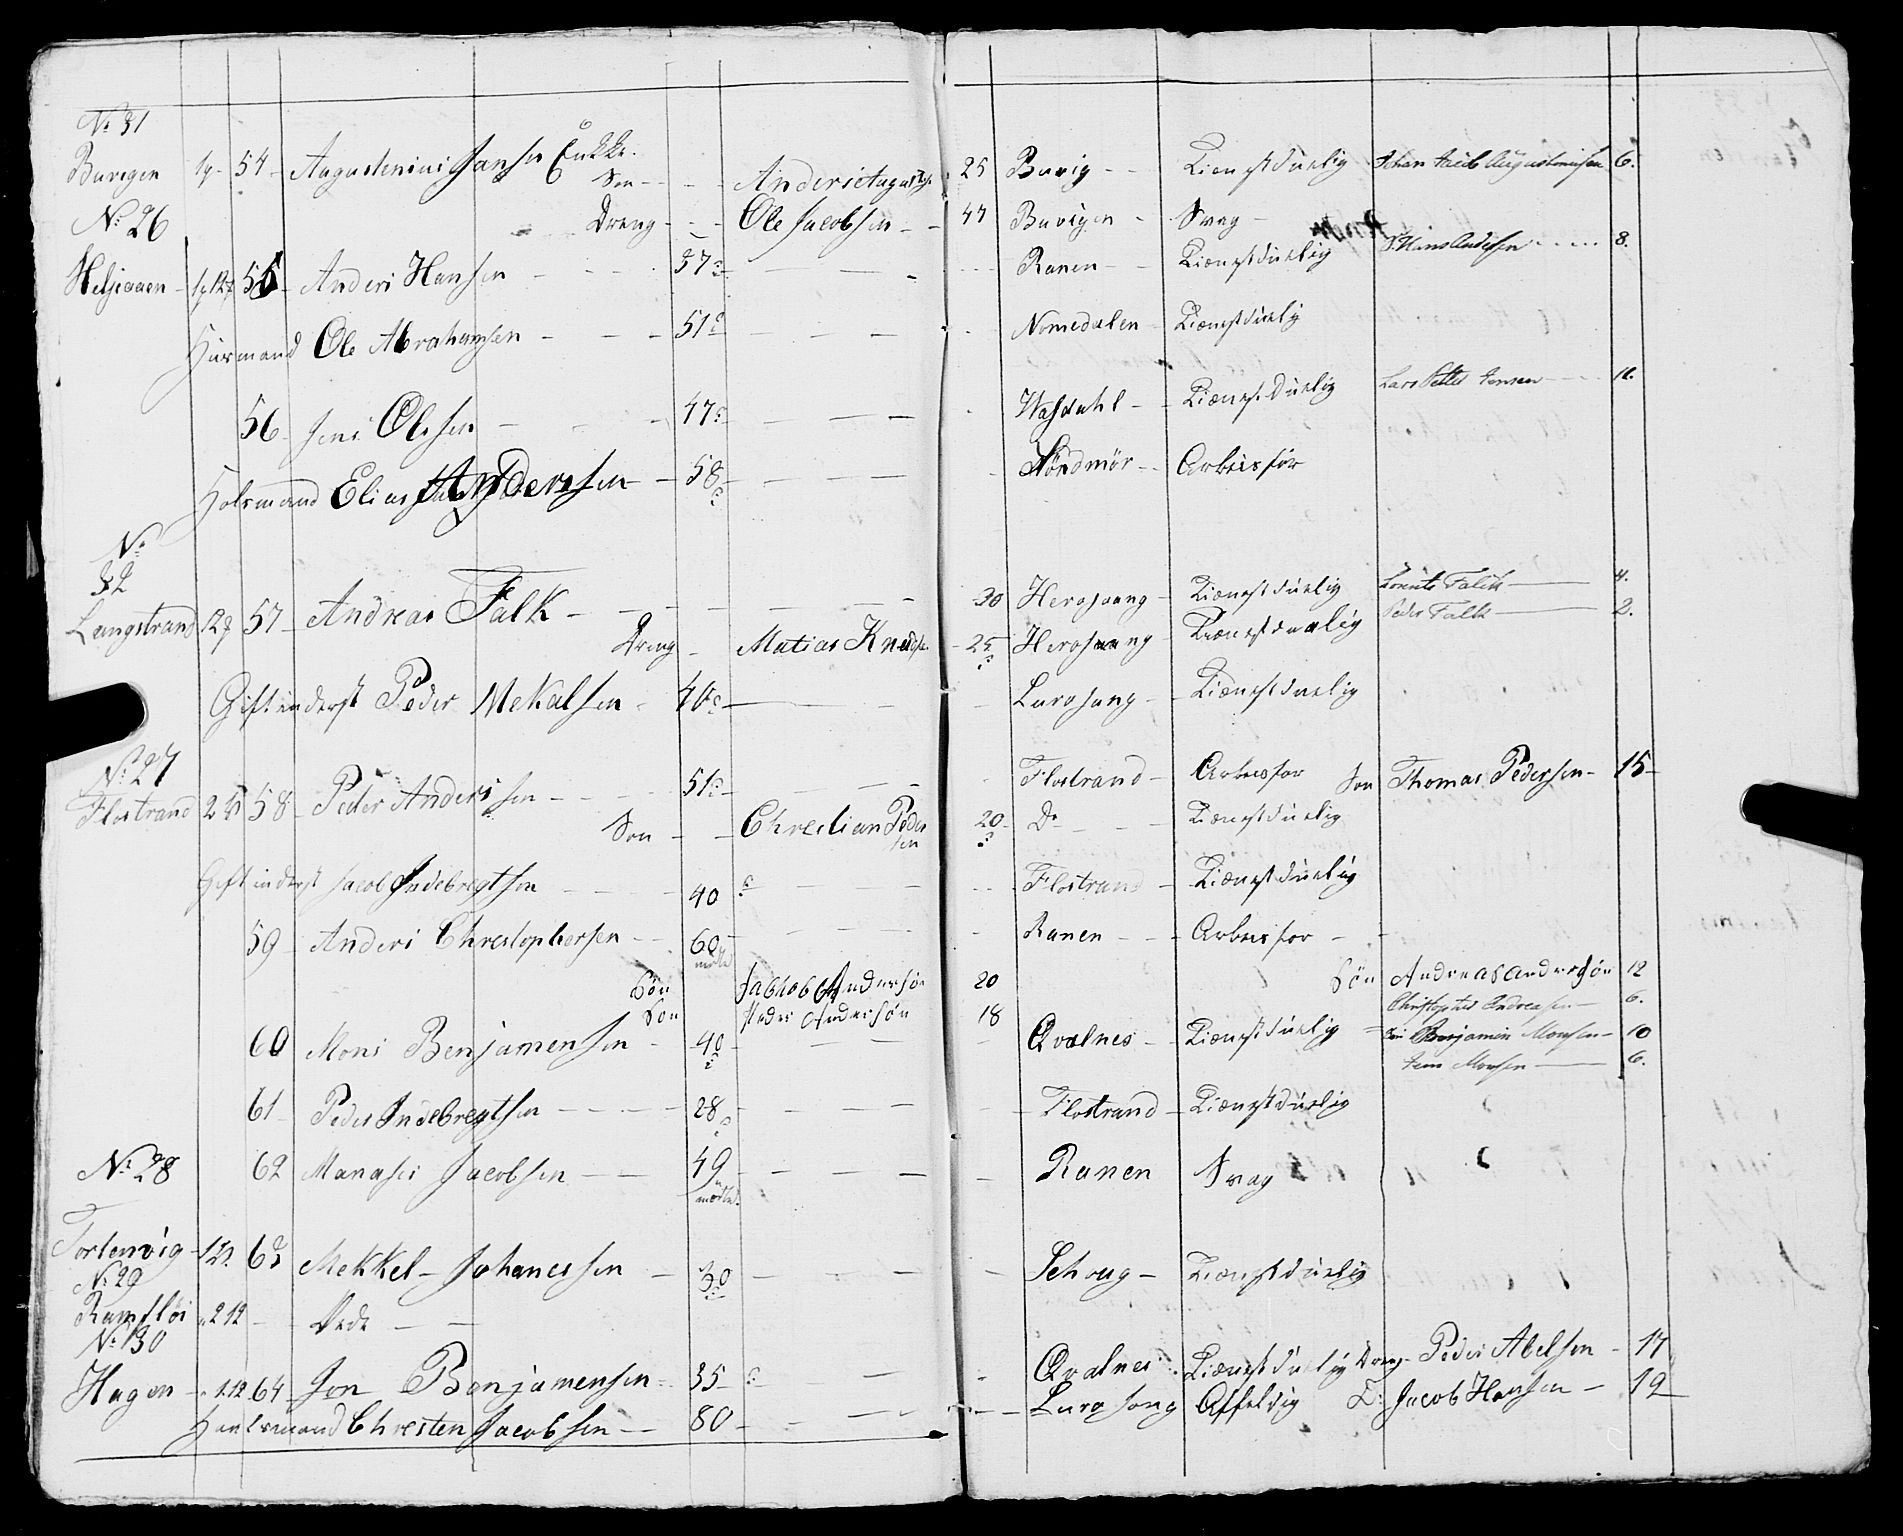 No 31
Buvigen 54 Augustinius Jansen Enkke.
Son Anders Augustsen 25 Buvig Tienestduelig Johan Jacob Augustinusen 6.
No 26
Dreng Ole Jacobsen 44 Buvigen Svag
Helsieaaen 55 Anders Hansen 37 Ranen Tienestduelig Hans Andersen 8.
Husmand Ole Abrahamsen 51 Nomedalen Tienestduelig
56 Jens Olesen 47 Vasdahl Tienestduelig Lars Petter Jensen
Holsmand Elias Anderssen 58 Nöndmör Arbeisför
No
32
Langstrand 12 57 Andreas Falk 30 Herosaang Tienestduelig Lorents Falch 4.
Peder Falch 2.
Dreng Matias Knudsen 25 Herosaang Tienestduelig
Gift inderst Peder Mekalsen 40 Lurosang Tienestduelig
No 27
Flostrand 2 58 Peder Andersen 51 Flostrand Arbeisfor Son Thomas Pedersen 15
Son Chrestian Pedersen 20 Do Tienestduelig
Gift inderst Jacob Indebregtsen 40 Flostrand Tienestduelig
59 Anders Chrestophersen 60 Ranen Arbeisfor
Sön Jakhob Andersön 20 Sön Andreas Andersön 12
Son Peder Andersön 18 Christopher Andreasen 6.
60 Mons Benjamensen 40 Qvalnes Tienestduelig Benjamin Monsen 10
Jens Monsen 6.
61 Peder Indebregtsen 28 Flostrand Tienestduelig
No 28
62 Manases Jacobsen 49 Ranen Svag
Tortenvig 12 63 Mekkel Johanessen 30 Schoug Tienestduelig
No 29
Ramsfloi 2 12 Øede
No 30
Hagen 1.12 64 Jon Benjamensen 35 Qvalnes Tienestduelig Dreng Peder Abelsen 17
Husmand Chresten Jacobsen 80 Lurosong Affeldig D: Jacob Hansen 19